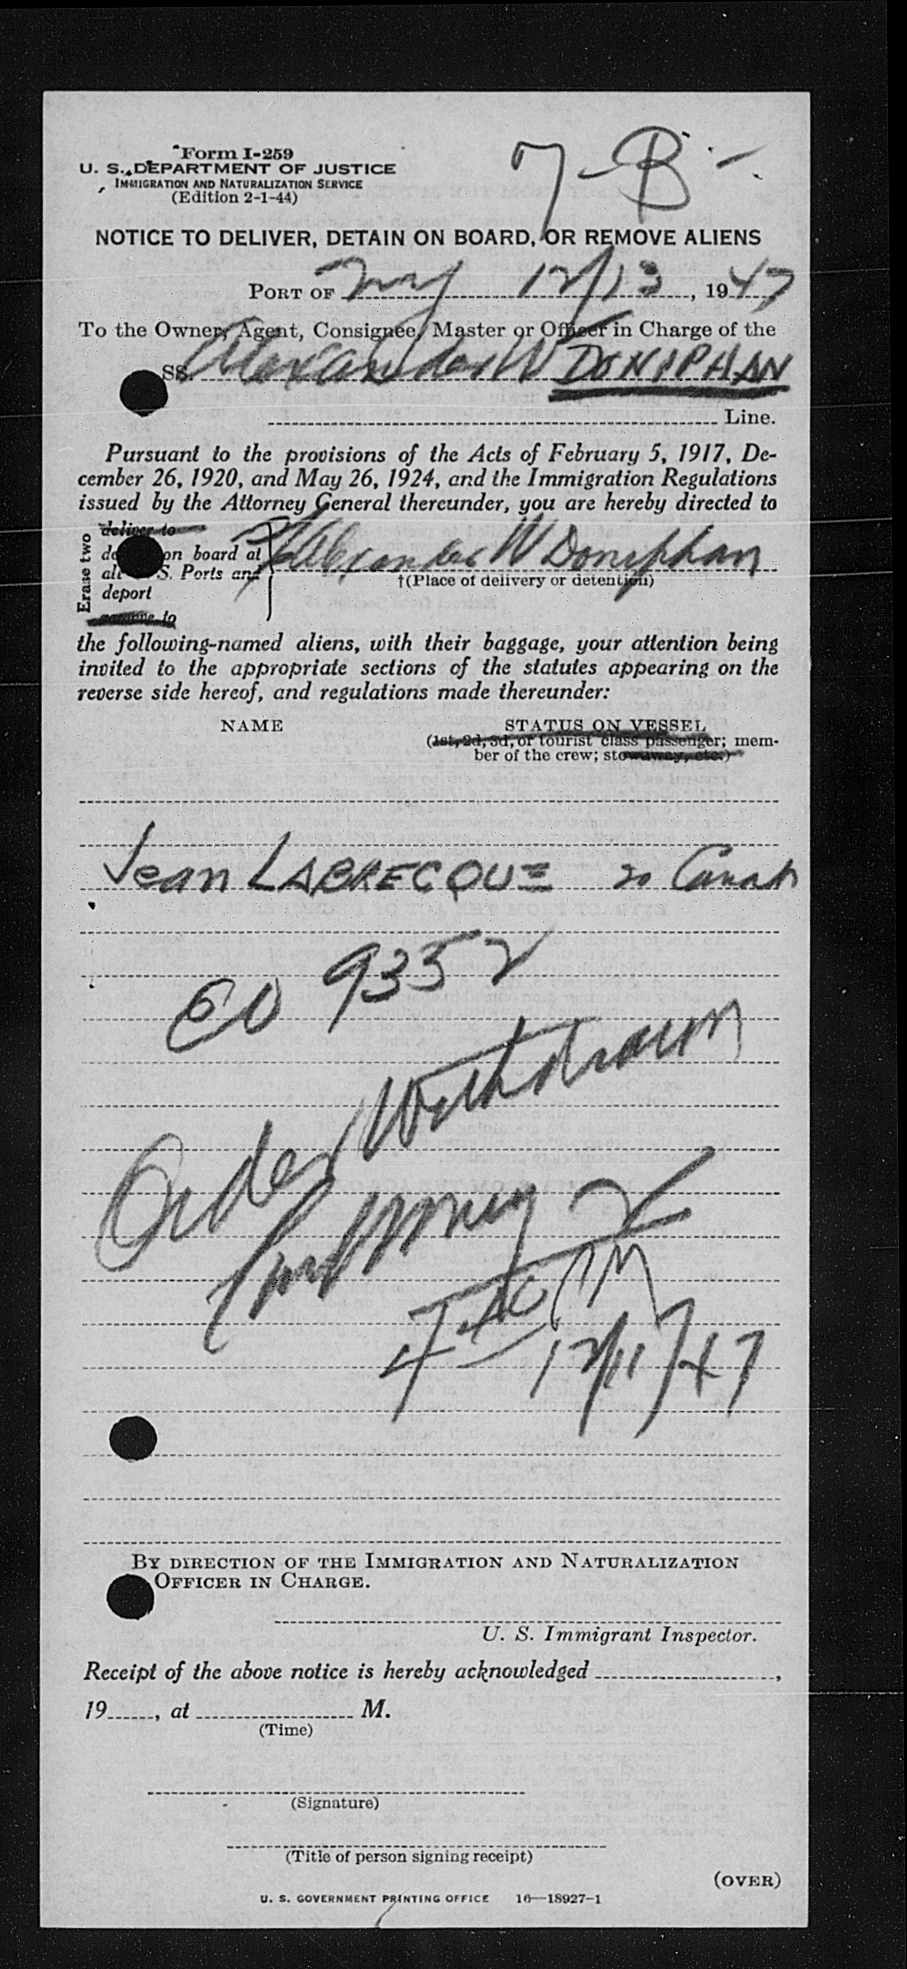 Form I-259
7-B-
U. S. DEPARTMENT OF JUSTICE
IMMIGRATION AND NATURALIZATION SERVICE
(Edition 2-1-44)
NOTICE TO DELIVER, DETAIN ON BOARD, OR REMOVE ALIENS
PORT OF NY 12/13, 1947
To the Owner, Agent, Consignee, Master or Officer in Charge of the
SS Alexander W DONIPHAN
Line.
Pursuant to the provisions of the Acts of February 5, 1917, De-
cember 26, 1920, and May 26, 1924, and the Immigration Regulations
issued by the Attorney General thereunder, you are hereby directed to
Erase two
deliver to
on board at
all U. S. Ports and
deport
remove to
Alexander W Doniphan
†(Place of delivery or detention)
the following-named aliens, with their baggage, your attention being
invited to the appropriate sections of the statutes appearing on the
reverse side hereof, and regulations made thereunder:
NAME STATUS ON VESSEL
(1st, 2d, 3d, or tourist class passenger; mem-
ber of the crew; stowaway, etc.)
Jean LABRECQUE 20 Canada
EO 9352
Order Withdrawn
PM
12/11/47
BY DIRECTION OF THE IMMIGRATION AND NATURALIZATION
OFFICER IN CHARGE.
U. S. Immigrant Inspector.
Receipt of the above notice is hereby acknowledged ,
19 , at M.
(Time)
(Signature)
(Title of person signing receipt)
(OVER)
U. S. GOVERNMENT PRINTING OFFICE 16—18927-1